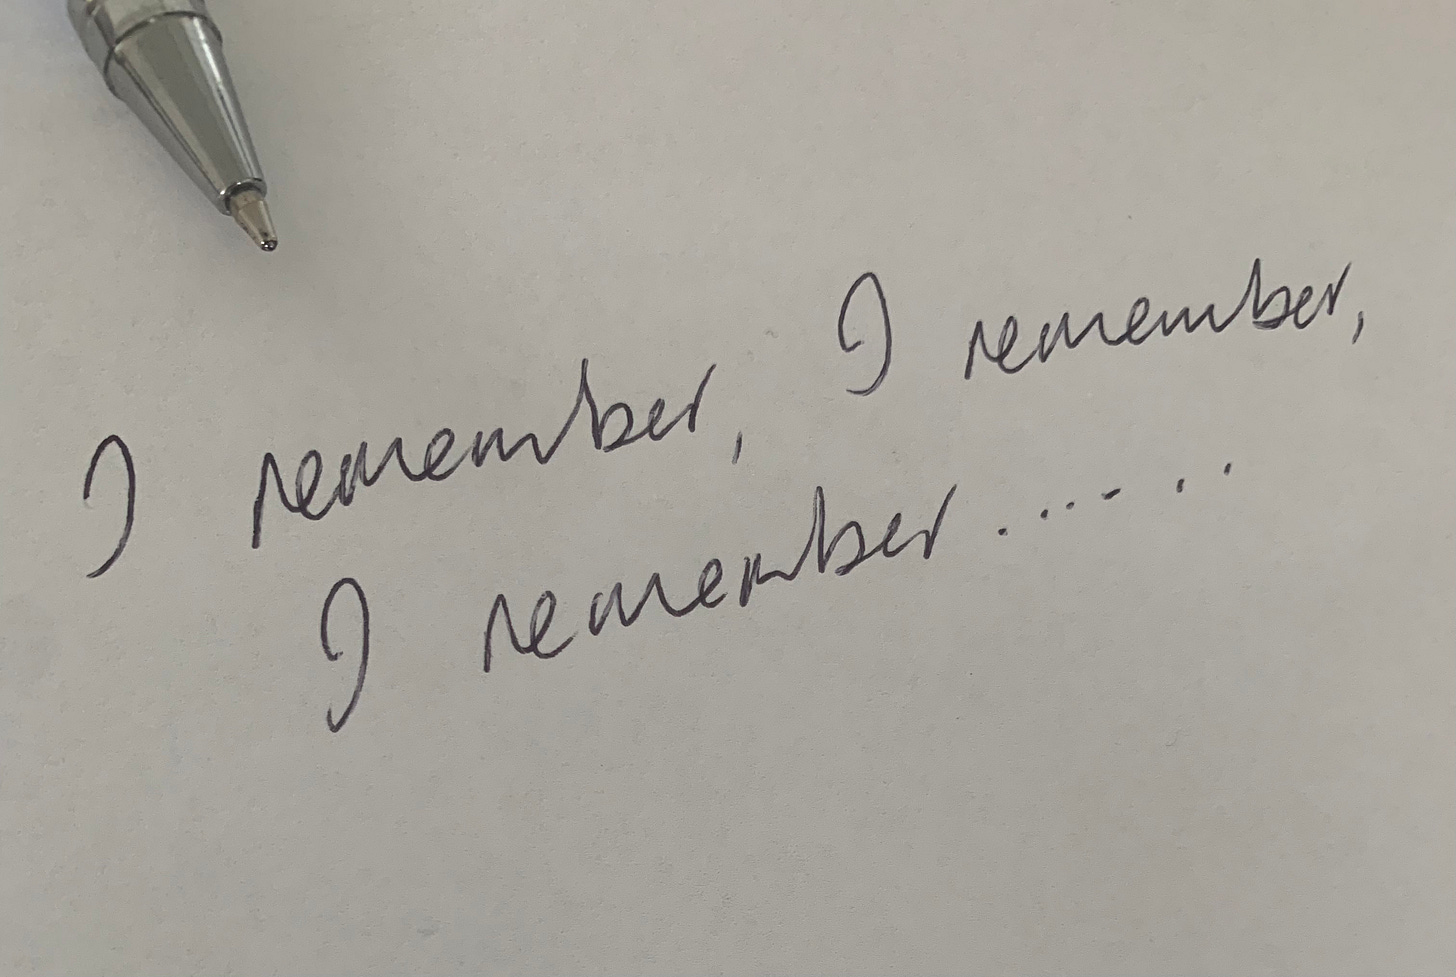 I remember, I remember,
I remember.......